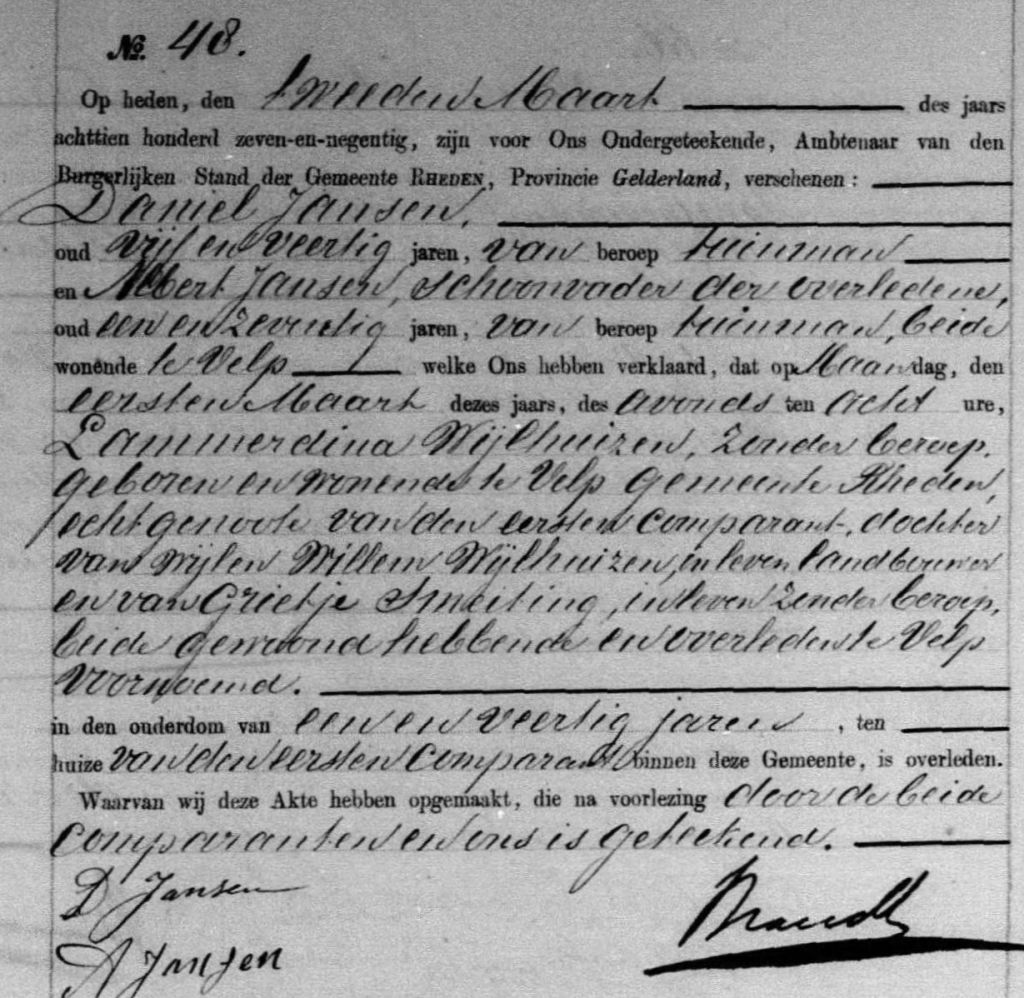 No. 48.
Op heden, den tweeden Maart des jaars
achttien honderd zeven-en-negentig, zijn voor Ons Ondergeteekende, Ambtenaar van den
Burgerlijken Stand der Gemeente RHEDEN, Provincie Gelderland, verschenen:
Daniel Jansen,
oud vijf en veertig jaren, van beroep tuinman
en Albert Jansen, schoonvader der overledene,
oud een en zeventig jaren, van beroep tuinman, beide
wonende te Velp welke Ons hebben verklaard, dat op Maandag, den
eersten Maart dezes jaars, des avonds ten acht ure,
Lammerdina Wijlhuizen, zonder beroep,
geboren en wonende te Velp gemeente Rheden,
echtgenoote van den eersten comparant, dochter
van wijlen Willem Wijlhuizen, in leven landbouwer
en van Grietje Smeiting, in leven zonder beroep,
beide gewoond hebbende en overleden te Velp
voornoemd.
in den ouderdom van een en veertig jaren, ten
huize van den eersten comparant binnen deze Gemeente, is overleden.
Waarvan wij deze Akte hebben opgemaakt, die na voorlezing door de beide
comparanten en ons is geteekend.
D Jansen
Brandt
A Jansen